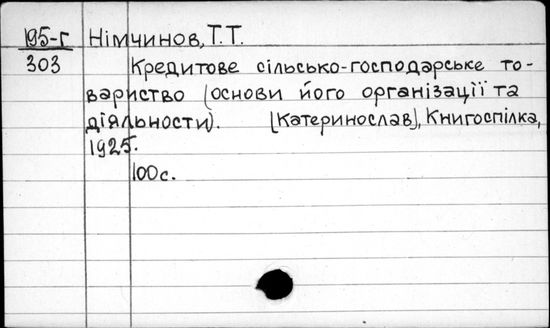 195-г Німчинов, Т.Т.
303 Кредитове сільсько-господарське то-
вариство (основи його організації та
діяльности). [Катеринослав], Книгоспілка,
1925.
100с.